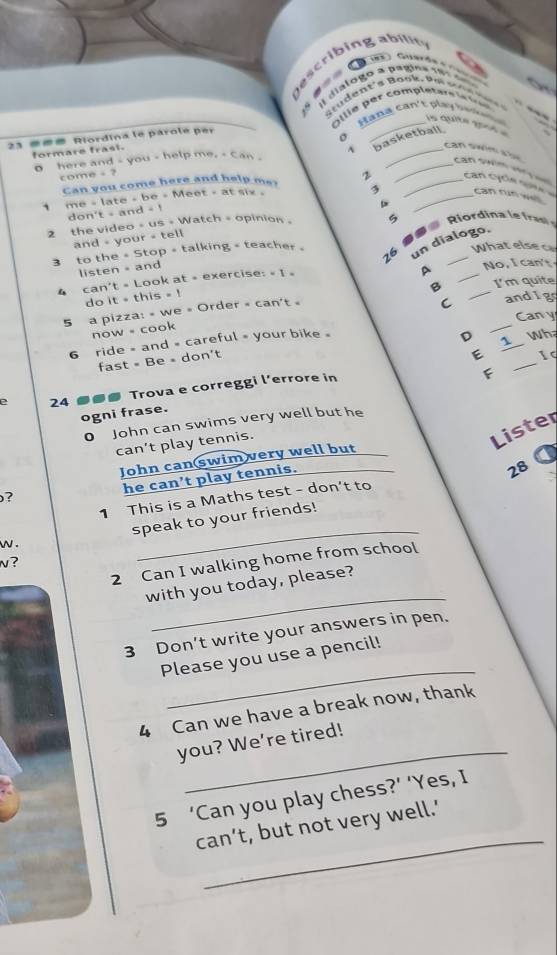 23 Riordina le parole per
formare frasi.
0 here and × you × help me, × Can ×
come × ?
Can you come here and help me?
1 me × late × be × Meet × at six ×
don't × and × !
2 the video × us × Watch × opinion ×
and × your × tell
3 to the × Stop × talking × teacher ×
listen × and
4 can't × Look at × exercise: × I ×
do it × this × !
5 a pizza: × we × Order × can't ×
now × cook
6 ride × and × careful × your bike ×
fast × Be × don't
24 Trova e correggi l'errore in
ogni frase.
0 John can swims very well but he
can't play tennis.
John can swim very well but
he can't play tennis.
1 This is a Maths test – don't to
speak to your friends!
2 Can I walking home from school
with you today, please?
3 Don't write your answers in pen.
Please you use a pencil!
4 Can we have a break now, thank
you? We're tired!
5 'Can you play chess?' 'Yes, I
can't, but not very well.'
?
w.
v?
Describing ability
Il dialogo a pagina
Student's Book.
Ollie per completare
0 Hana can't play
is quite good
1 basketball.
2 can swim
3 can swim
4 can cycle
5 can run
26 Riordina le frasi
un dialogo.
A What else
B No, I can't
C I'm quite
and I
D Can y
E 1 Wha
F I c
Listen
28